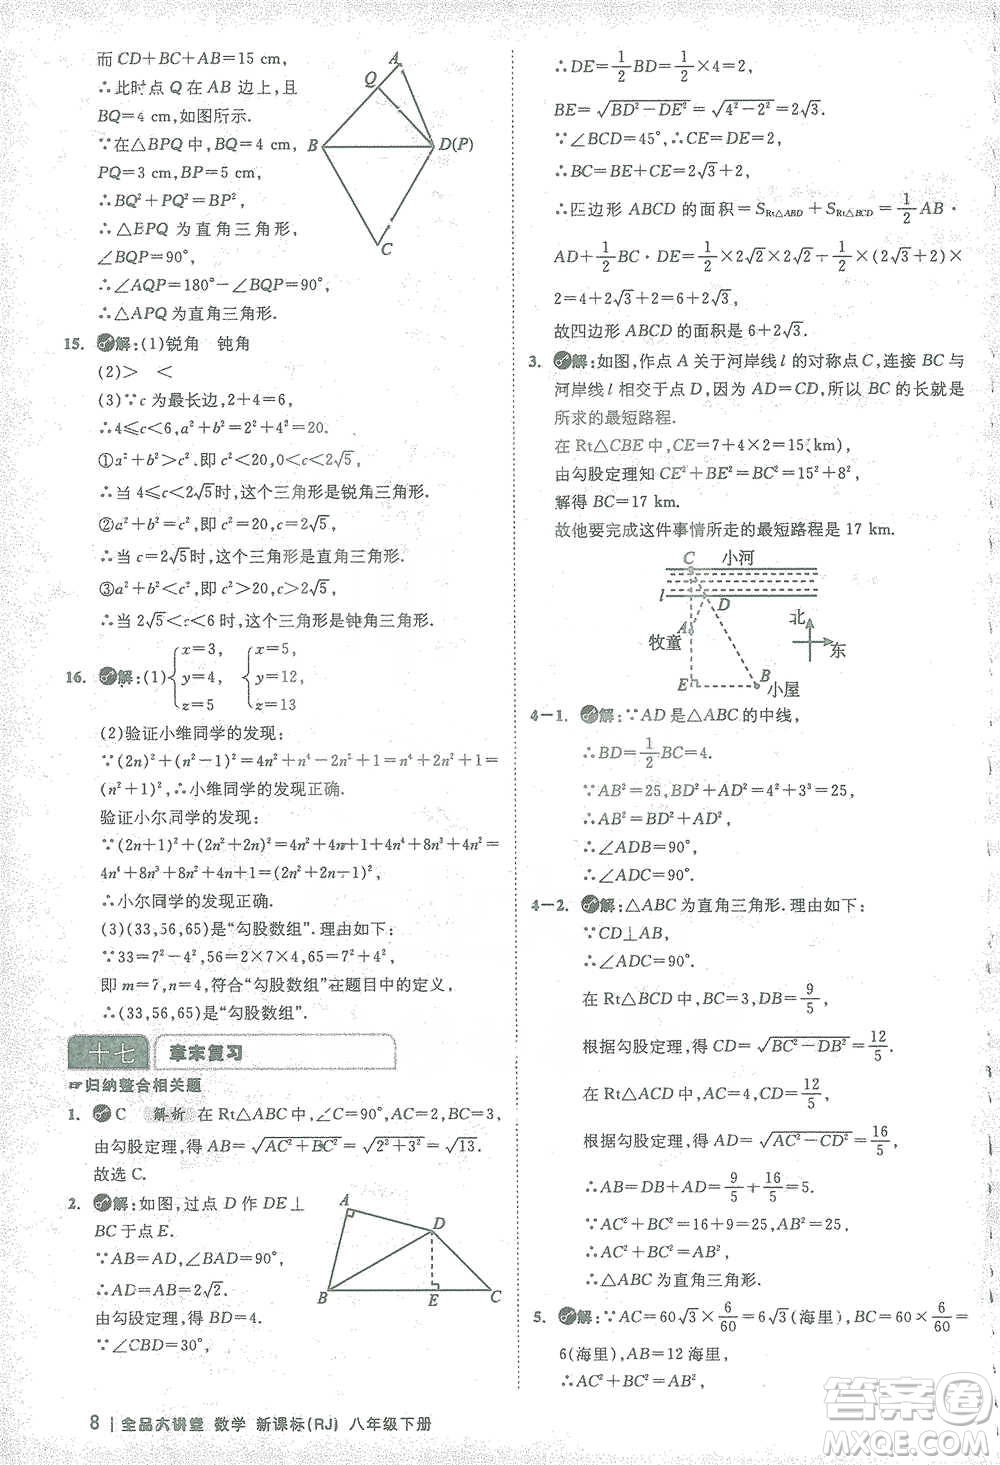 而 CD+BC+AB=15 cm,
∴此时点 Q 在 AB 边上,且
BQ=4 cm,如图所示.
∵在△BPQ 中,BQ=4 cm,
PQ=3 cm,BP=5 cm,
∴BQ²+PQ²=BP²,
∴△BPQ 为直角三角形,
∠BQP=90°,
∴∠AQP=180°-∠BQP=90°,
∴△APQ 为直角三角形.
A
Q
B
D(P)
C
15. 解:(1)锐角 钝角
(2)> <
(3)∵c 为最长边,2+4=6,
∴4≤c<6,a²+b²=2²+4²=20.
①a²+b²>c²,即 c²<20,0<c<2√5,
∴当 4≤c<2√5时,这个三角形是锐角三角形.
②a²+b²=c²,即 c²=20,c=2√5,
∴当 c=2√5时,这个三角形是直角三角形.
③a²+b²<c²,即 c²>20,c>2√5,
∴当 2√5<c<6 时,这个三角形是钝角三角形.
16. 解:(1){x=3, y=4, z=5 {x=5, y=12, z=13
(2)验证小维同学的发现:
∵(2n)²+(n²-1)²=4n²+n⁴-2n²+1=n⁴+2n²+1=
(n²+1)²,∴小维同学的发现正确.
验证小尔同学的发现:
∵(2n+1)²+(2n²+2n)²=4n²+4n+1+4n⁴+8n³+4n²=
4n⁴+8n³+8n²+4n+1=(2n²+2n+1)²,
∴小尔同学的发现正确.
(3)(33,56,65)是“勾股数组”.理由如下:
∵33=7²-4²,56=2×7×4,65=7²+4²,
即 m=7,n=4,符合“勾股数组”在题目中的定义,
∴(33,56,65)是“勾股数组”.
十七 章末复习
☞归纳整合相关题
1. C 解析 在 Rt△ABC 中,∠C=90°,AC=2,BC=3,
由勾股定理,得 AB=√(AC²+BC²)=√(2²+3²)=√13.
故选 C.
2. 解:如图,过点 D 作 DE⊥
BC 于点 E.
∵AB=AD,∠BAD=90°,
∴AD=AB=2√2.
由勾股定理,得 BD=4.
∵∠CBD=30°,
A
D
B
E
C
8 | 全品大讲堂 数学 新课标(RJ) 八年级下册
∴DE=1/2BD=1/2×4=2,
BE=√(BD²-DE²)=√(4²-2²)=2√3.
∵∠BCD=45°,∴CE=DE=2,
∴BC=BE+CE=2√3+2,
∴四边形 ABCD 的面积=S_Rt△ABD+S_Rt△BCD=1/2AB·
AD+1/2BC·DE=1/2×2√2×2√2+1/2×(2√3+2)×
2=4+2√3+2=6+2√3.
故四边形 ABCD 的面积是 6+2√3.
3. 解:如图,作点 A 关于河岸线 l 的对称点 C,连接 BC 与
河岸线 l 相交于点 D,因为 AD=CD,所以 BC 的长就是
所求的最短路程.
在 Rt△CBE 中,CE=7+4×2=15(km),
由勾股定理知 CE²+BE²=BC²=15²+8²,
解得 BC=17 km.
故他要完成这件事情所走的最短路程是 17 km.
C
小河
l
D
A
牧童
北
东
E
B
小屋
4-1. 解:∵AD 是△ABC 的中线,
∴BD=1/2BC=4.
∵AB²=25,BD²+AD²=4²+3²=25,
∴AB²=BD²+AD²,
∴∠ADB=90°,
∴∠ADC=90°.
4-2. 解:△ABC 为直角三角形.理由如下:
∵CD⊥AB,
∴∠ADC=90°.
在 Rt△BCD 中,BC=3,BD=9/5,
根据勾股定理,得 CD=√(BC²-DB²)=12/5.
在 Rt△ADC 中,AC=4,CD=12/5,
根据勾股定理,得 AD=√(AC²-CD²)=16/5,
∴AB=DB+AD=9/5+16/5=5.
∵AC²+BC²=16+9=25,AB²=25,
∴AC²+BC²=AB²,
∴△ABC 为直角三角形.
5. 解:∵AC=60√3×6/60=6√3(海里),BC=60×6/60=
6(海里),AB=12 海里,
∴AC²+BC²=AB²,
答案圈
MXQE.COM